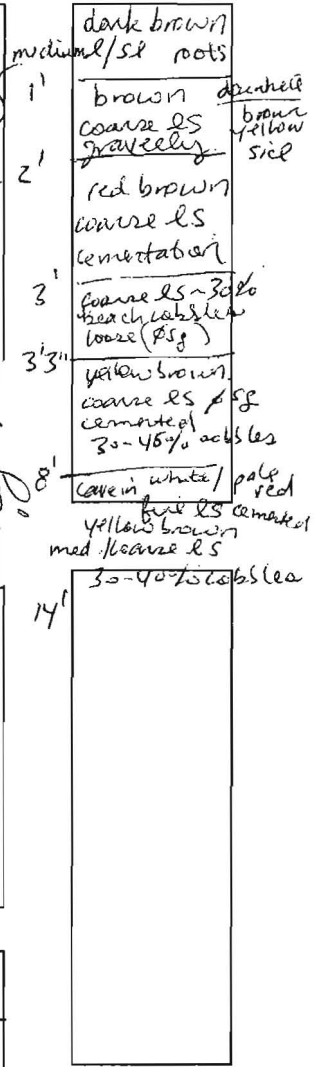 dark brown
medium l/sl roots
1'
brown
coarse ls
gravelly
brown
yellow
sicl
2'
red brown
coarse ls
cementation
3'
coarse ls ~30%
beach cobbles
loose (øsg)
3'3"
yellow brown
coarse ls øsg
cemented
30-45% cobbles
8'
cave in white/pale
red
fine ls cemented
yellow brown
med/coarse ls
30-40% cobbles
14'